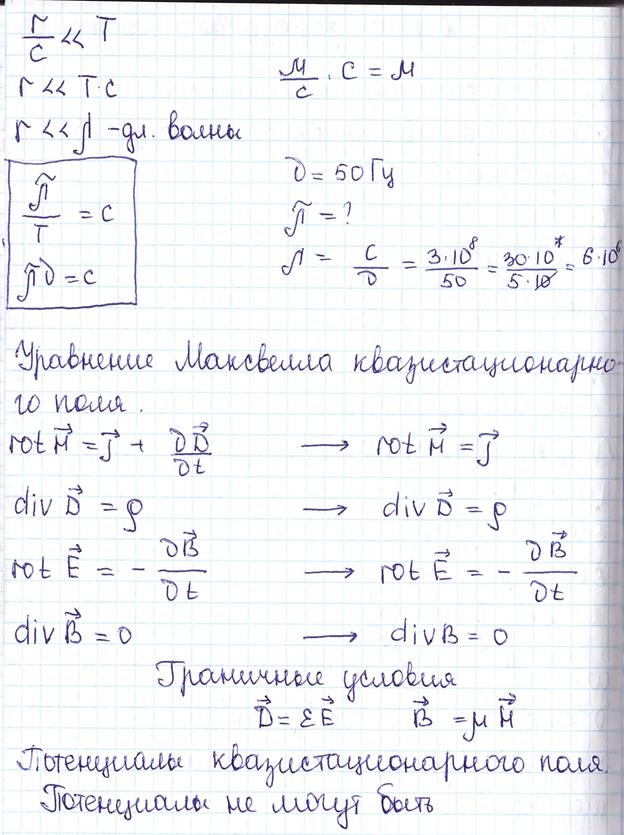 r/c << T
r << T·c
м/с · с = м
r << λ - дл. волны
λ/T = c
λν = c
ν = 50 Гц
λ = ?
λ = c/ν = 3·10⁸/50 = 30·10⁷/5·10 = 6·10⁶
Уравнение Максвелла квазистационарно-
го поля.
rot H⃗ = j⃗ + ∂D⃗/∂t → rot H⃗ = j⃗
div D⃗ = ρ → div D⃗ = ρ
rot E⃗ = - ∂B⃗/∂t → rot E⃗ = - ∂B⃗/∂t
div B⃗ = 0 → div B = 0
Граничные условия
D⃗ = εE⃗ B⃗ = μH⃗
Потенциалы квазистационарного поля.
Потенциалы не могут быть